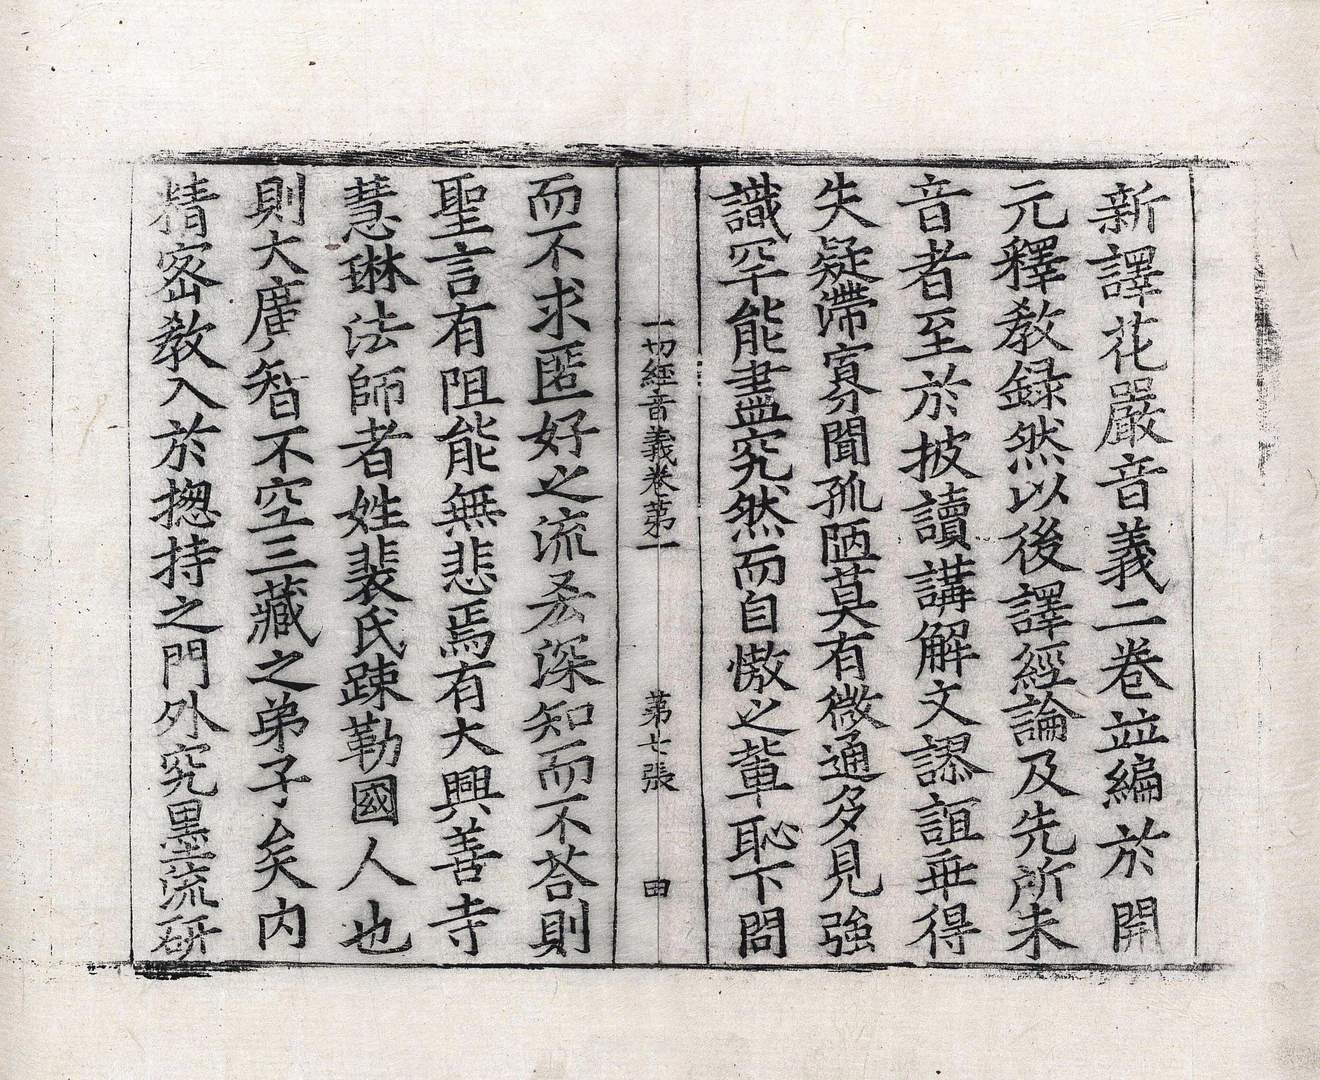 新譯花嚴音義二卷並編於開
元釋教録然以後譯經論及先所未
音者至於披讀講解文謬誼乖得
失疑滯寡聞孤陋莫有微通多見強
識罕能盡究然而自慠之輩恥下問
一切經音義卷第一 第七張 由
而不求匿好之流吝深知而不荅則
聖言有阻能無悲焉有大興善寺
慧琳法師者姓裴氏疎勒國人也
則大廣智不空三藏之弟子矣内
精密教入於揔持之門外究墨流研